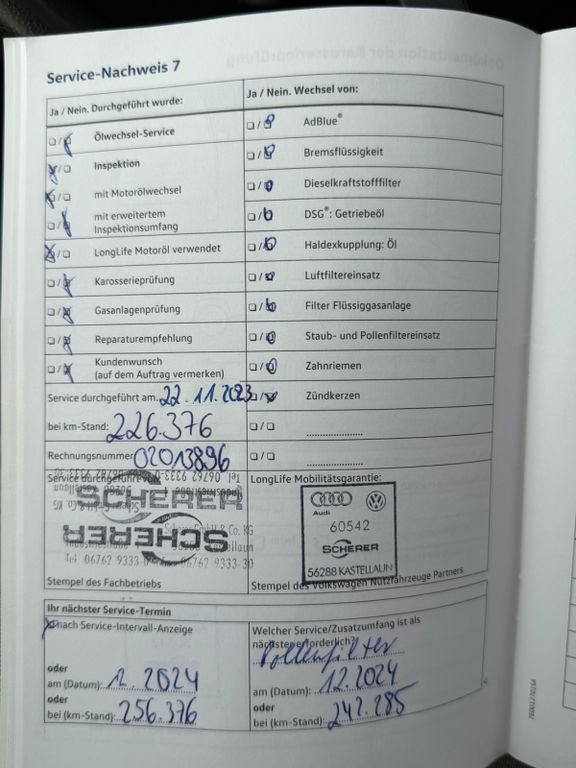 Service-Nachweis 7
Ja / Nein. Durchgeführt wurde:
Ja / Nein. Wechsel von:
☐ / ☒ Ölwechsel-Service
☐ / ☒ AdBlue®
☒ / ☐ Inspektion
☐ / ☒ Bremsflüssigkeit
☒ / ☐ mit Motorölwechsel
☐ / ☒ Dieselkraftstofffilter
☐ / ☒ mit erweitertem
Inspektionsumfang
☐ / ☒ DSG®: Getriebeöl
☒ / ☐ LongLife Motoröl verwendet
☐ / ☒ Haldexkupplung: Öl
☐ / ☒ Karosserieprüfung
☐ / ☒ Luftfiltereinsatz
☐ / ☒ Gasanlagenprüfung
☐ / ☒ Filter Flüssiggasanlage
☐ / ☒ Reparaturempfehlung
☐ / ☒ Staub- und Pollenfiltereinsatz
☐ / ☒ Kundenwunsch
(auf dem Auftrag vermerken)
☐ / ☒ Zahnriemen
Service durchgeführt am: 22.11.2023
☐ / ☒ Zündkerzen
bei km-Stand: 226.376
☐ / ☐
Rechnungsnummer: 02013896
☐ / ☐
Service durchgeführt von:
SCHERER
SCHERER
Tel 06762 9333-0 06762 9333-30
Stempel des Fachbetriebs
LongLife Mobilitätsgarantie:
Audi
60542
SCHERER
56288 KASTELLAUN
Stempel des Volkswagen Nutzfahrzeuge Partners
Ihr nächster Service-Termin
☒ nach Service-Intervall-Anzeige
oder
am (Datum): 2024
oder
bei (km-Stand): 256.376
Welcher Service/Zusatzumfang ist als
nächstes erforderlich?
Pollenfilter
am (Datum): 12.2024
oder
bei (km-Stand): 242.285